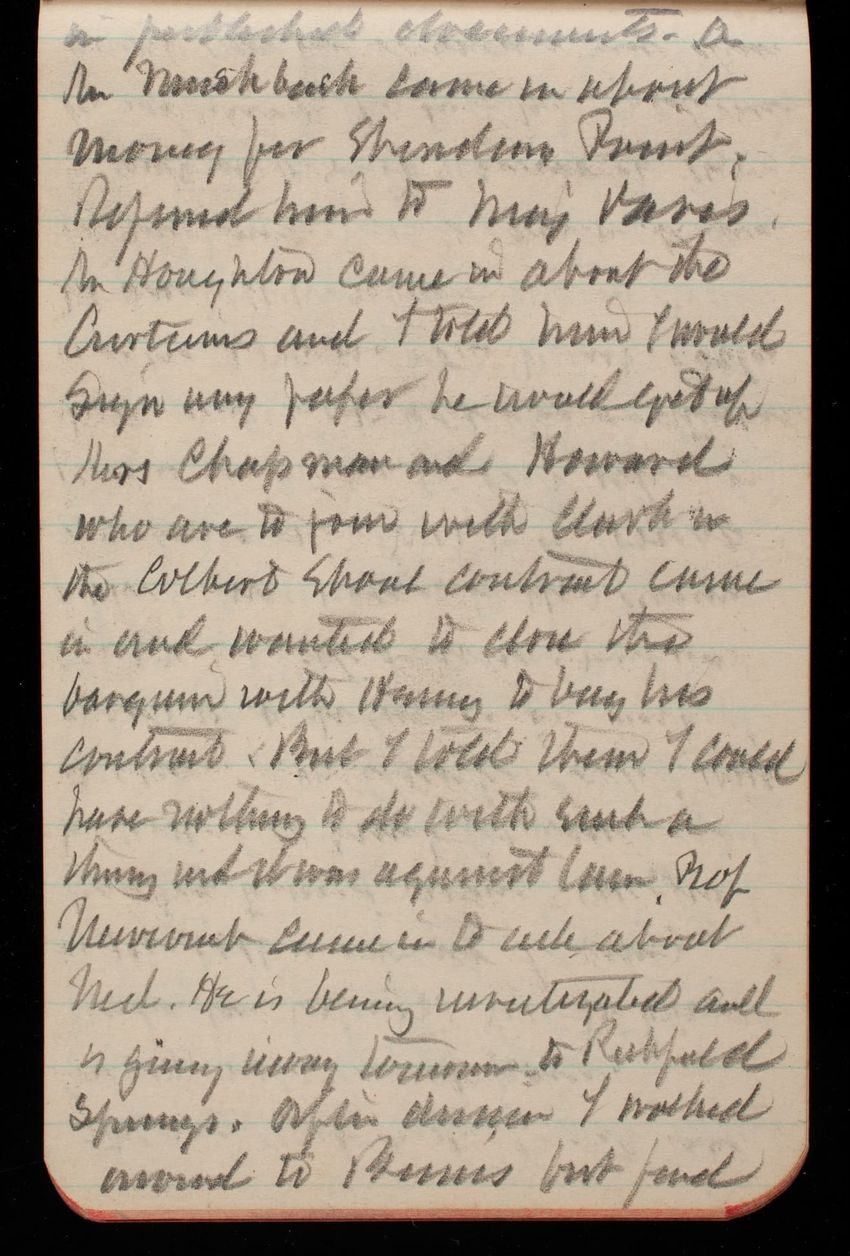 in published documents. a
Mr Mushbach came in about
money for Sheridan Point.
Refered him to Maj Davis.
Mr Houghton came in about the
and I told him I would
Sign any paper he would get up
Mrs Chapman and Howard
who are to join with Clark in
the Colbert Shoal contract came
in and wanted to close the
bargain with to buy his
contract. But I told them I could
have nothing to do with such a
thing and it was against law. Prof
came in to about
Ned. He is being investigated and
is going away tomorrow to Richfield
Springs. After dinner I walked
around to but find